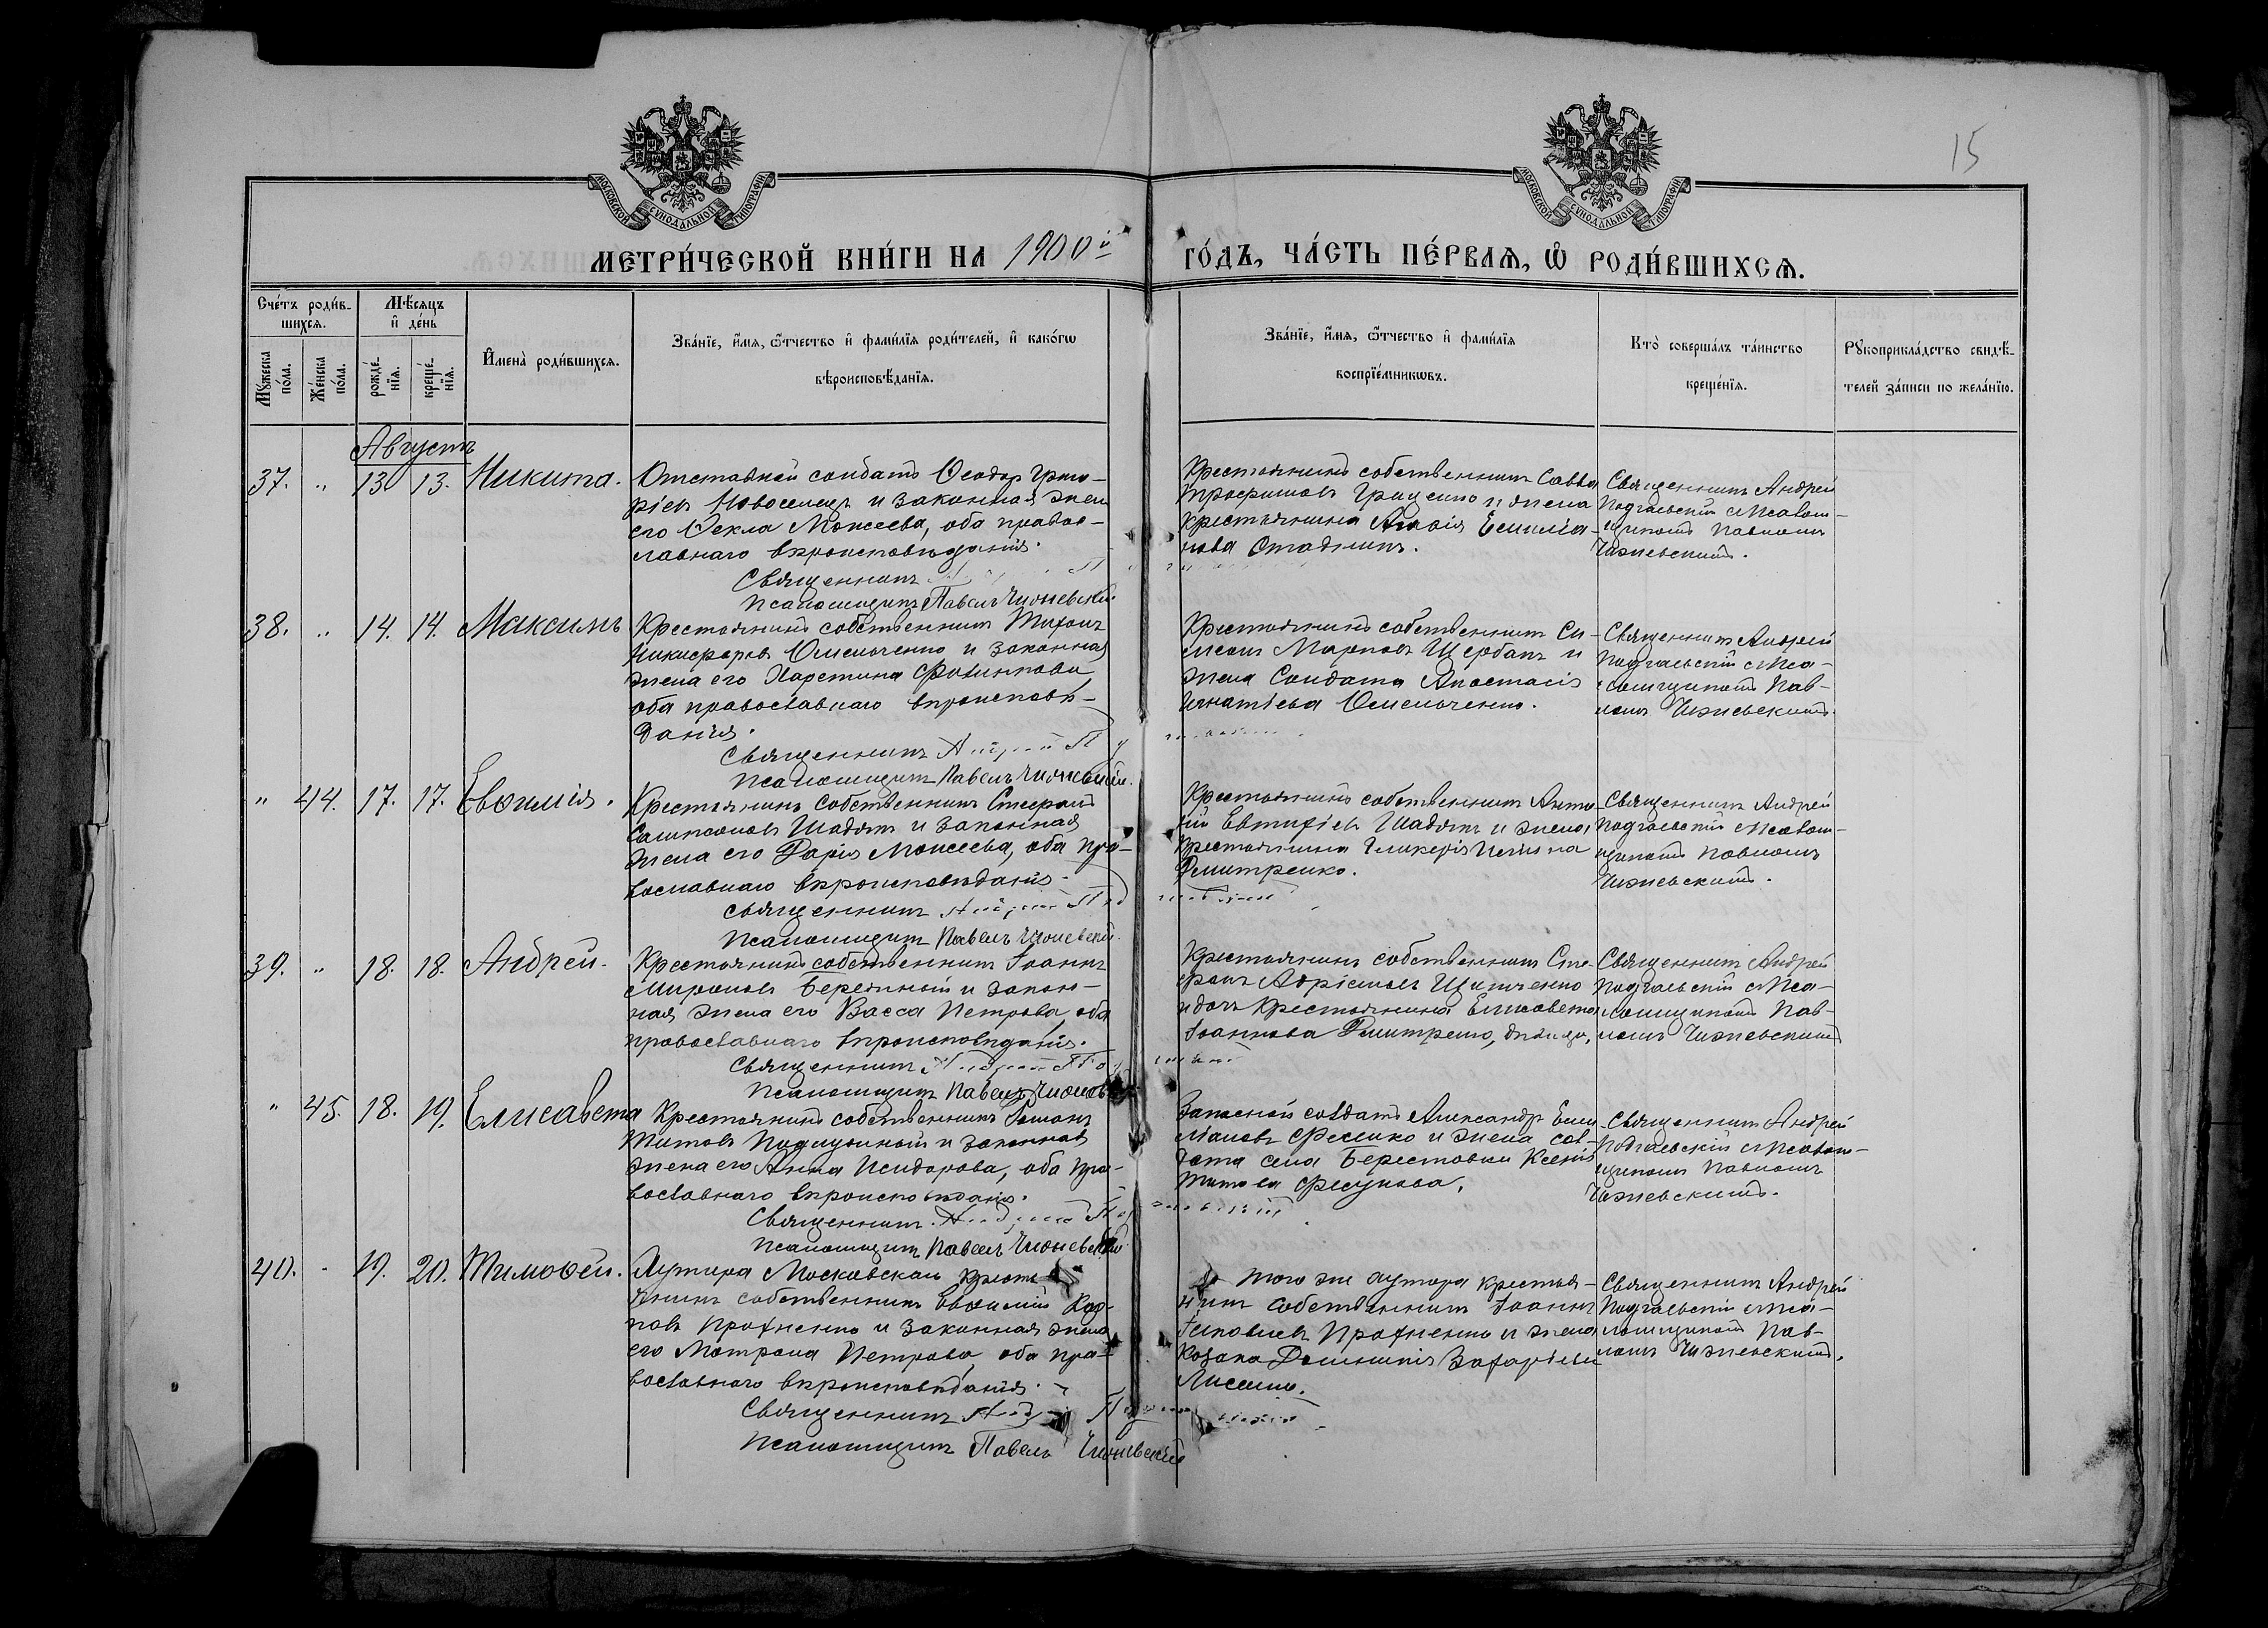 15
МОСКОВСКОЙ СѴНОДАЛЬНОЙ ТИПОГРАФІИ
МОСКОВСКОЙ СѴНОДАЛЬНОЙ ТИПОГРАФІИ
МЕТРИ́ЧЕСКОЙ КНИ́ГИ НА 1900й ГО́ДЪ, ЧА́СТЬ ПЕ́РВАѦ, Ѡ҆ РОДИ́ВШИХСѦ.
Сче́тъ роди́в-
шихсѧ.
Мѣ́сѧцъ
и҆ де́нь
Мꙋ́жеска по́ла.
Же́нска по́ла.
рожде́-
нїѧ.
креще́-
нїѧ.
И҆мена̀ роди́вшихсѧ.
Зва́нїе, и҆́мѧ, ѻ҆́тчество и҆ фами́лїѧ роди́телей, и҆ како́гѡ
вѣроисповѣ́данїѧ.
Зва́нїе, и҆́мѧ, ѻ҆́тчество и҆ фами́лїѧ
воспрїе́мникѡвъ.
Кто̀ соверша́лъ та́инство
креще́нїѧ.
Рꙋкоприкла́дство свидѣ́-
телей за́писи по жела́нїю.
Августъ
37. „ 13 13. Никита.
Отставной солдатъ Ѳеодоръ Григо-
ріевъ Новоселецъ и законная жена
его Ѳекла Моисеева, оба правос-
лавнаго вѣроисповѣданія.
Священникъ
Псаломщикъ Павелъ Чижевскій.
Крестьянинъ собственникъ Савва
Трофимовъ Гриценко и жена
крестьянина Емилiа-
нова Стадникъ.
Священникъ Андрей
Подгаевскій съ Псалом-
щикомъ Павломъ
Чижевскимъ.
38. „ 14. 14. Максимъ
Крестьянинъ собственникъ Тихонъ
Никифоровъ Омельченко и законная
жена его Харетина Фотинова
оба православнаго вѣроисповѣ-
данія.
Священникъ Андрей
Псаломщикъ Павелъ Чижевскій.
Крестьянинъ собственникъ Си-
меонъ Марковъ Щербакъ и
жена Солдата Анастасія
Игнатіева Омельченко.
Священникъ Андрей
Подгаевскій съ Пса-
ломщикомъ Пав-
ломъ Чижевскимъ.
„ 44. 17. 17. Евѳимія.
Крестьянинъ собственникъ Стефанъ
Сампсоновъ Шадятъ и законная
жена его Дарія Моисеева, оба пра-
вославнаго вѣроисповѣданія.
Священникъ Андрей
Псаломщикъ Павелъ Чижевскій.
Крестьянинъ собственникъ Анто-
ній Евтихіевъ Шадятъ и жена
крестьянина Гликерія
Дмитренко.
Священникъ Андрей
Подгаевскій съ Псалом-
щикомъ Павломъ
Чижевскимъ.
39. „ 18. 18. Андрей.
Крестьянинъ собственникъ Іоаннъ
Мироновъ Бережный и закон-
ная жена его Васса Петрова, оба
православнаго вѣроисповѣданія.
Священникъ Андрей
Псаломщикъ Павелъ Чижевскій
Крестьянинъ собственникъ Сте-
фанъ Адріановъ
и дочь крестьянина Елисавета
Іоаннова Дмитренко, дѣвица,
Священникъ Андрей
Подгаевскій съ Пса-
ломщикомъ Пав-
ломъ Чижевскимъ
„ 45. 18. 19. Елисавета
Крестьянинъ собственникъ
Титовъ и законная
жена его Анна Исидорова, оба пра-
вославнаго вѣроисповѣданія.
Священникъ Андрей
Псаломщикъ Павелъ Чижевскій
Запасной солдатъ Александръ Еми-
ліановъ Фесенко и жена сол-
дата села Берестовки Ксенія
Титова Фесунова.
Священникъ Андрей
Подгаевскій съ Псалом-
щикомъ Павломъ
Чижевскимъ.
40. „ 19. 20. Тимоѳей.
Хутора Московскаго крестья-
нинъ собственникъ Евѳимій Кар-
повъ Прохненко и законная жена
его Матрона Петрова, оба пра-
вославнаго вѣроисповѣданія.
Священникъ
Псаломщикъ Павелъ Чижевскій
Того же хутора крестья-
нинъ собственникъ Іоаннъ
Прохненко и жена
козака Домникія Захаріева
Лисенко.
Священникъ Андрей
Подгаевскій съ Пса-
ломщикомъ Пав-
ломъ Чижевскимъ.